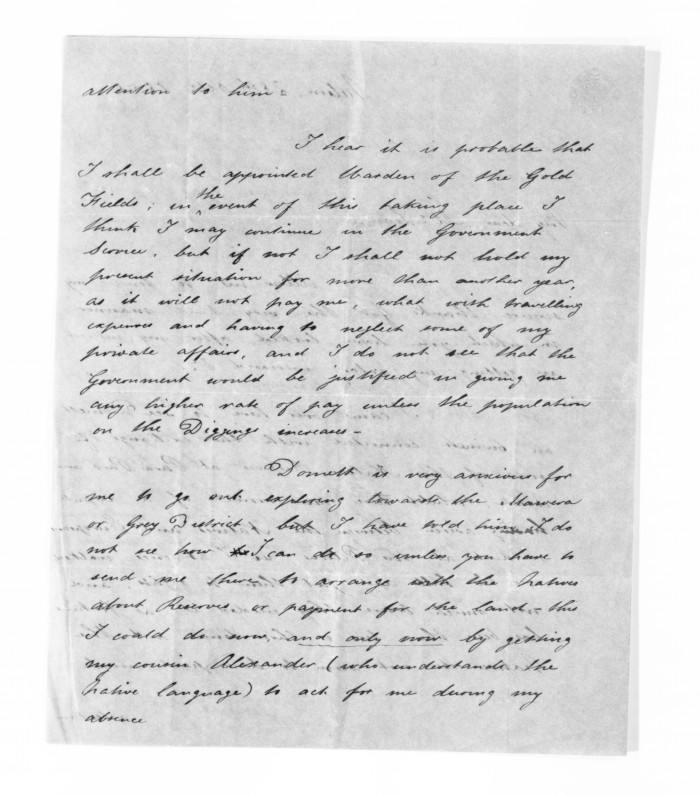 attention to him
I hear it is probable that
I shall be appointed Warden of the Gold
Fields; in the event of this taking place I
think I may continue in the Government
Service, but if not I shall not hold my
present situation for more than another year,
as it will not pay me, what with travelling
expenses and having to neglect some of my
private affairs, and I do not see that the
Government would be justified in giving me
any higher rate of pay unless the population
on the Diggings increases -
Domett is very anxious for
me to go out exploring towards the Mawera
or Grey District, but I have told him I do
not see how I can do so unless you have to
send me there to arrange with the Natives
about Reserves, or payment for the land - this
I could do now, and only now by getting
my cousin Alexander (who understands the
Native language) to act for me during my
absence